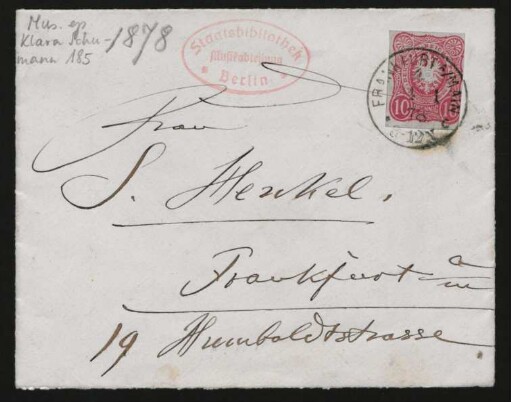 Mus. ep
Klara Schu-
mann 185
1878
Staatsbibliothek
Musikabteilung
Berlin
FRANKFURT A/MAIN
78
10
Frau
S. Henkel.
Frankfurt a/m
19 Humboldtstrasse